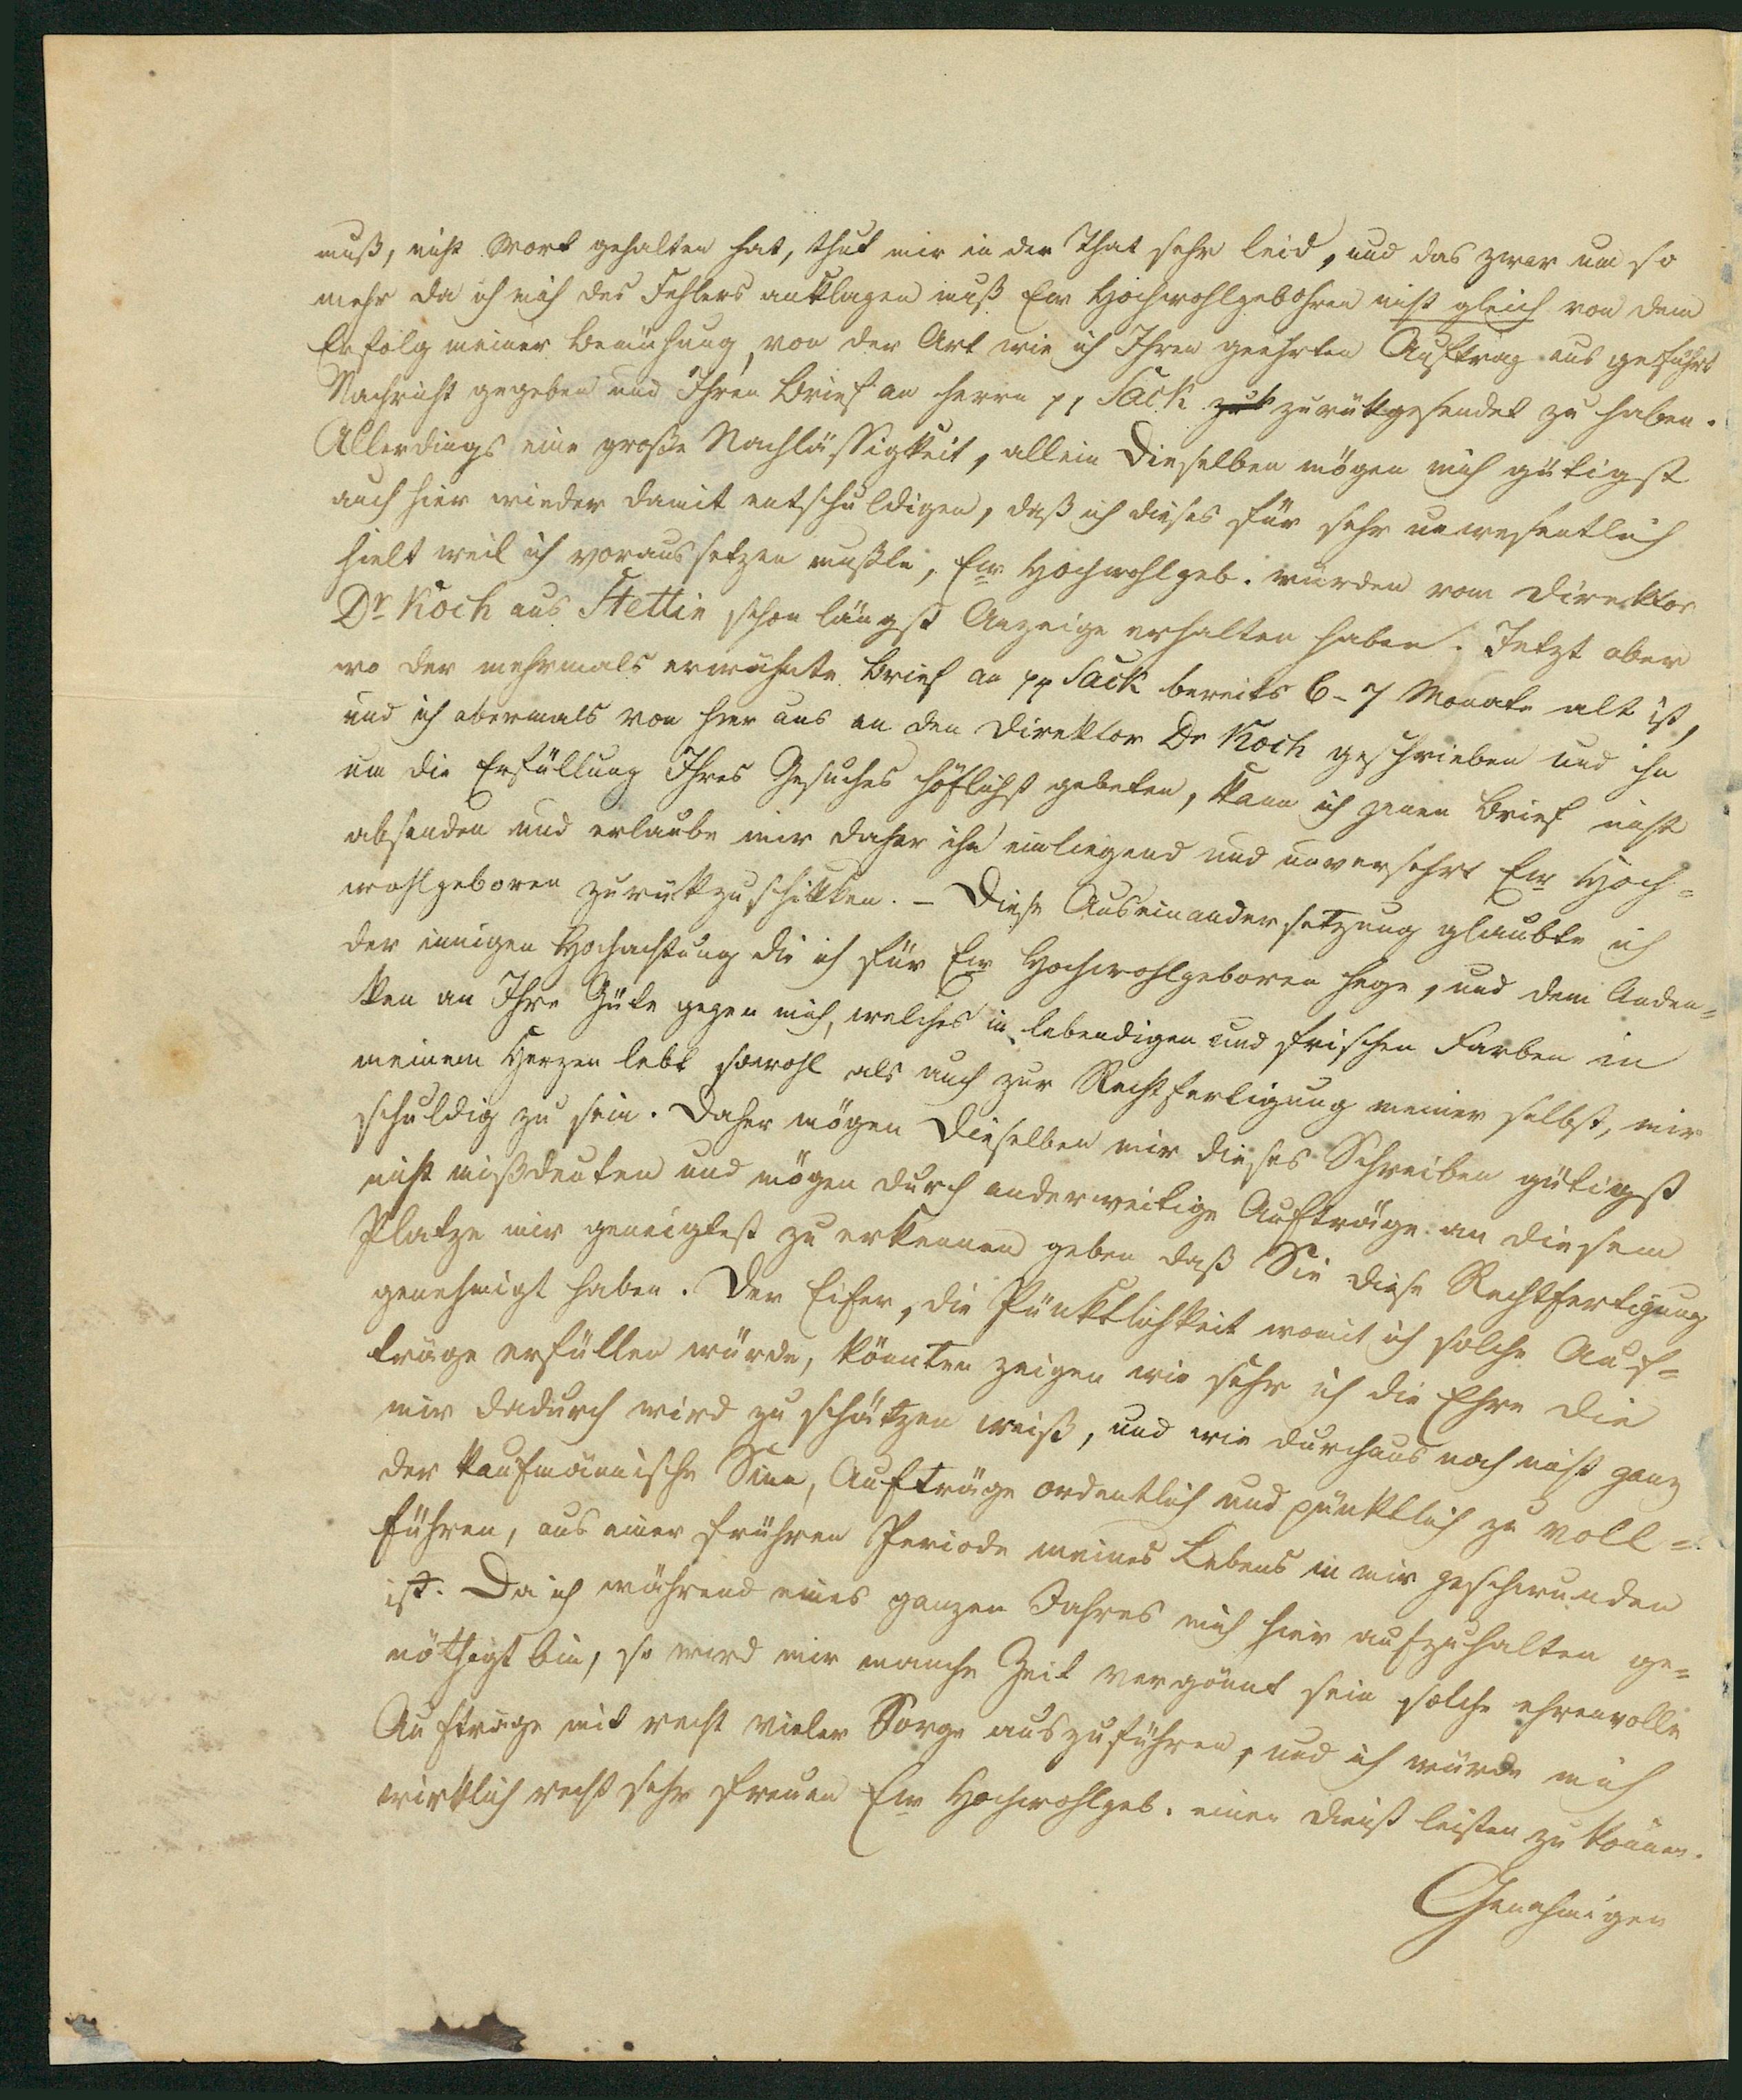 muß, nicht Wort gehalten hat, thut mir in der That sehr leid, und das zwar um so
mehr da ich mich des Fehlers anklagen muß Ew Hochwohlgebohren nicht gleich von dem
Erfolg meiner Bemühung, von der Art wie ich Ihren geehrten Auftrag ausgeführt
Nachricht gegeben und Ihren Brief an Herrn pp Sack zuk zurükgesendet zu haben.
Allerdings eine große Nachlässigkeit, allein Dieselben mögen mich gütigst
auch hier wieder damit entschuldigen, daß ich dieses für sehr unwesentlich
hielt weil ich voraussetzen mußte, Ew Hochwohlgeb. würden vom Direktor
Dr Koch aus Stettin schon längst Anzeige erhalten haben. Jetzt aber
wo der mehrmals erwähnte Brief an pp Sack bereits 6-7 Monate alt ist,
und ich abermals von hier aus an den Direktor Dr Koch geschrieben und ihn
um die Erfüllung Ihres Gesuches höflichst gebeten, kann ich jenen Brief nicht
absenden und erlaube mir daher ihn einliegend und unversehrt Ew Hoch=
wohlgeboren zurükzuschikken. – Diese Auseinandersetzung glaubte ich
der innigen Hochachtung die ich für Ew Hochwohlgeboren hege, und dem Anden=
ken an Ihre Güte gegen mich, welches in lebendigen und frischen Farben in
meinem Herzen lebt sowohl als auch zur Rechtfertigung meiner selbst, mir
schuldig zu sein. Daher mögen Dieselben mir dieses Schreiben gütigst
nicht mißdeuten und mögen durch anderweitige Aufträge an diesem
Platze mir geneigtest zu erkennen geben daß Sie diese Rechtfertigung
genehmigt haben. Der Eifer, die Pünktlichkeit womit ich solche Auf=
träge erfüllen würde, könnten zeigen wie sehr ich die Ehre die
mir dadurch wird zu schätzen weiß, und wie durchaus noch nicht ganz
der kaufmännische Sinn, Aufträge ordentlich und pünktlich zu voll=
führen, aus einer frühren Periode meines Lebens in mir geschwunden
ist. Da ich während eines ganzen Jahres mich hier aufzuhalten ge=
nöthigt bin, so wird mir manche Zeit vergönnt sein solche ehrenvolle
Aufträge mit recht vieler Sorge auszuführen, und ich würde mich
wirklich recht sehr freuen Ew Hochwohlgeb. einen Dienst leisten zu können.
Genehmigen